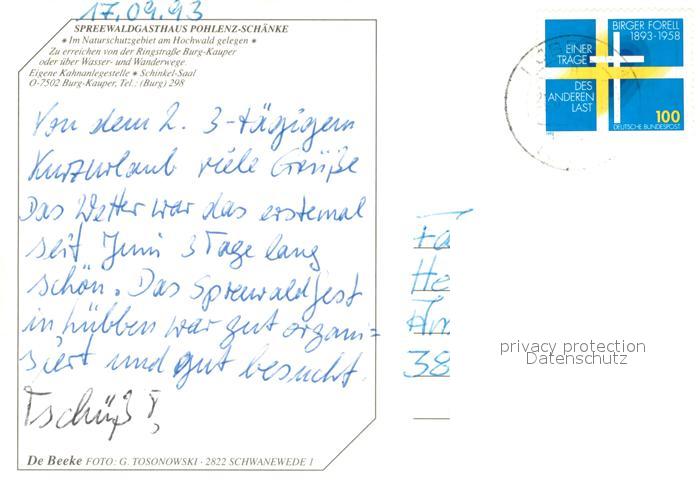 17.09.93
SPREEWALDGASTHAUS POHLENZ-SCHÄNKE
* Im Naturschutzgebiet am Hochwald gelegen *
Zu erreichen von der Ringstraße Burg-Kauper
oder über Wasser- und Wanderwege.
Eigene Kahnanlegestelle * Schinkel-Saal
O-7502 Burg-Kauper, Tel.: (Burg) 298
Von dem 2. 3-tägigem
Kurzurlaub viele Grüße
Das Wetter war das erstemal
seit Juni 3 Tage lang
schön. Das Spreewaldfest
in Lübben war gut organi=
siert und gut besucht.
Tschüß!
De Beeke FOTO: G. TOSONOWSKI · 2822 SCHWANEWEDE 1
BIRGER FORELL
1893-1958
EINER
TRAGE
DES
ANDEREN
LAST
100
DEUTSCHE BUNDESPOST
Fa
He
Am
38
privacy protection
Datenschutz